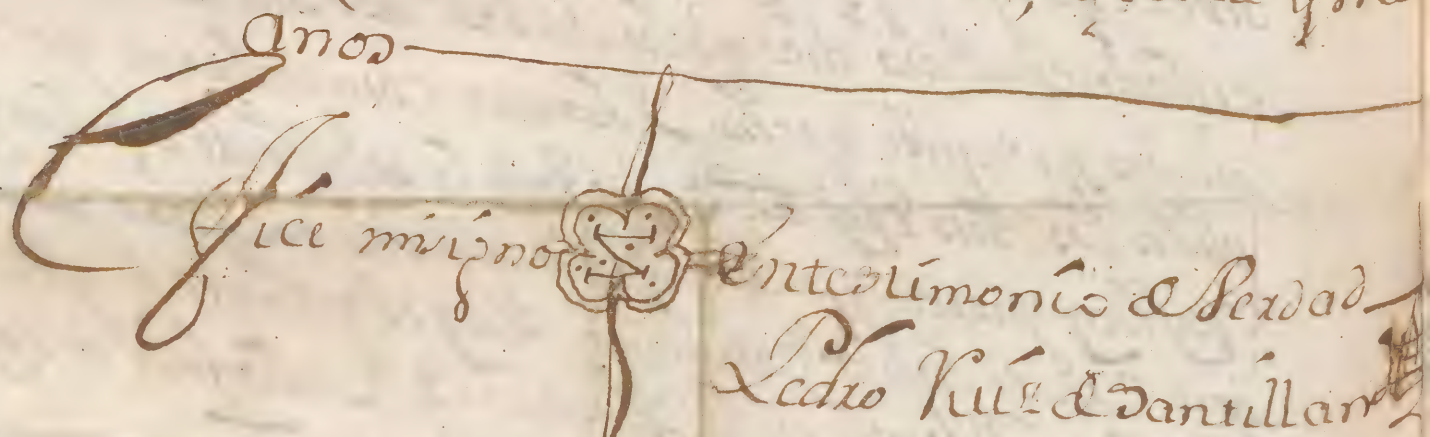 años
fice mi signo en testimonio de Verdad
Pedro Ruiz de Santillan